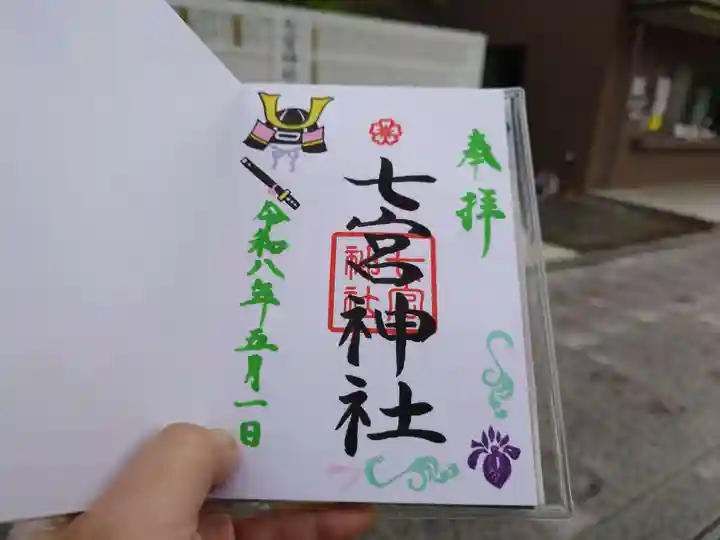 奉拝
七宮神社
七宮
神社
令和八年五月一日